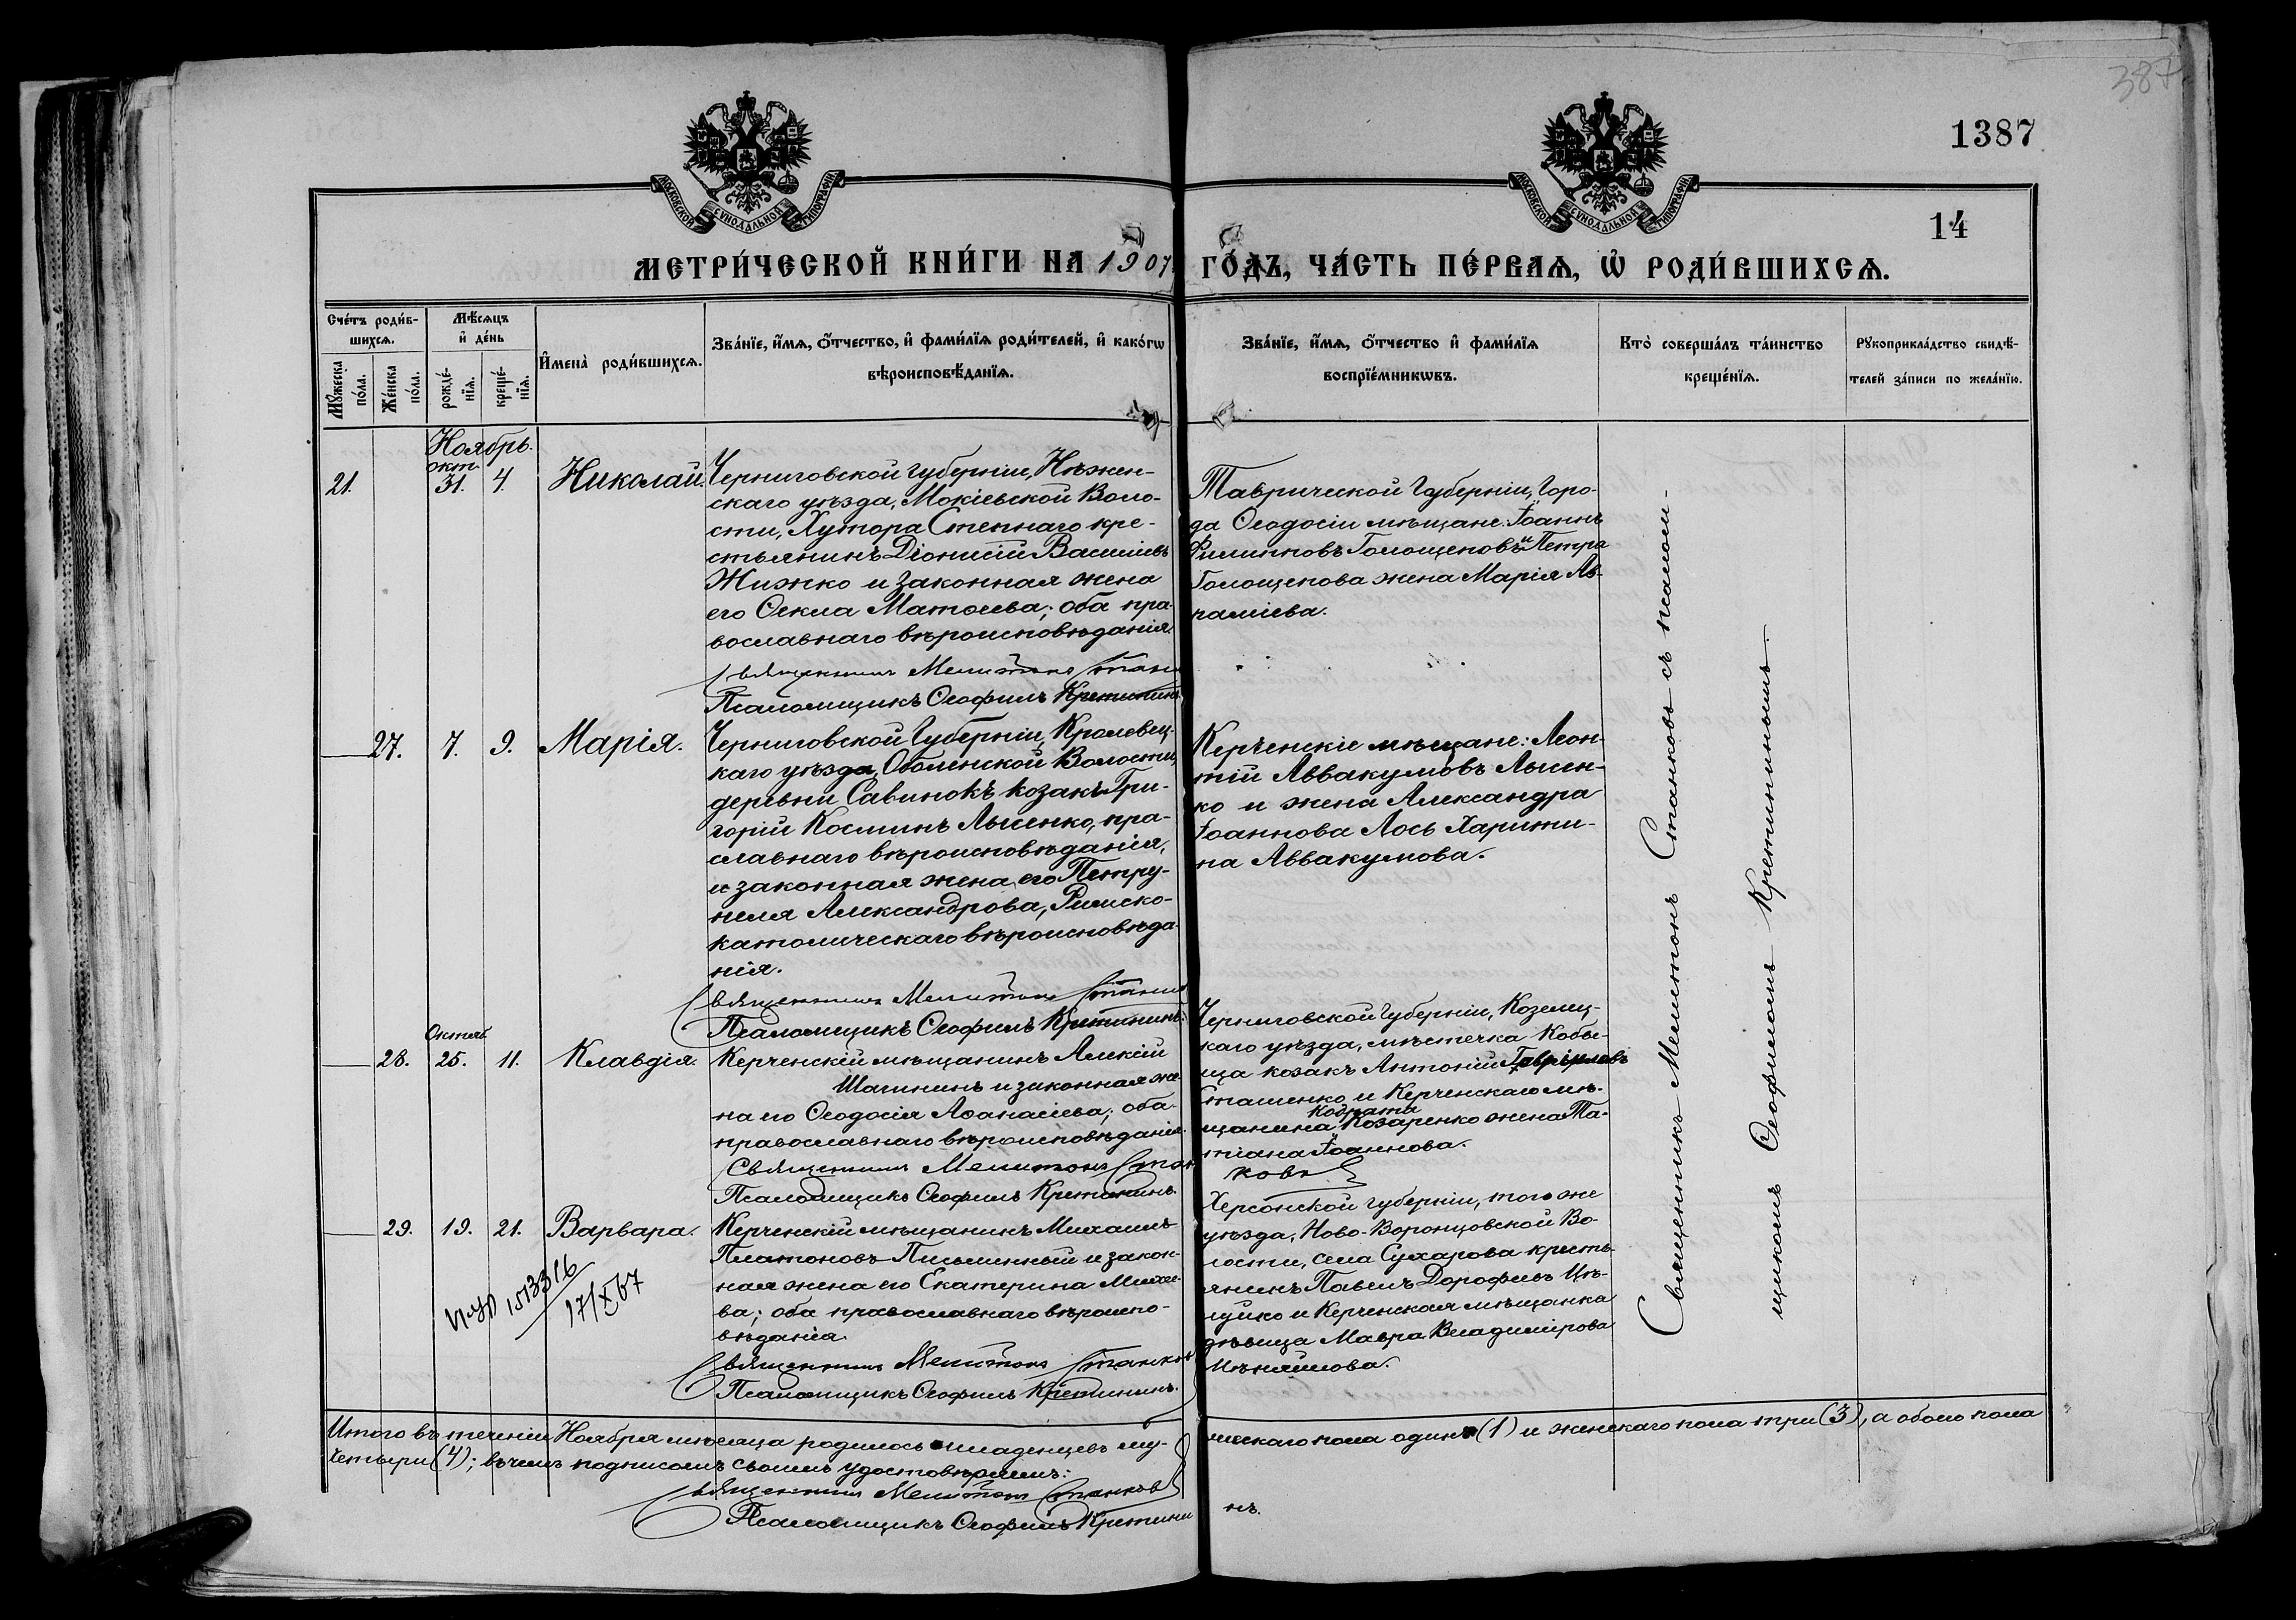 387
1387
14
МОСКОВСКОЙ СѴНОДАЛЬНОЙ ТИПОГРАФІИ.
МОСКОВСКОЙ СѴНОДАЛЬНОЙ ТИПОГРАФІИ.
МЕТРИ́ЧЕСКОЙ КНИ́ГИ НА 1907 ГО́ДЪ, ЧА́СТЬ ПЕ́РВАѦ, Ѡ҆ РОДИ́ВШИХСѦ.
Сче́тъ роди́в-
шихсѧ.
Мѣ́сѧцъ
и҆ де́нь
Мꙋ́жеска
по́ла.
Же́нска
по́ла.
рожде́-
нїѧ.
креще́-
нїѧ.
И҆мена̀ роди́вшихсѧ.
Зва́нїе, и҆́мѧ, ѻ҆́тчество, и҆ фами́лїѧ роди́телей, и҆ како́гѡ
вѣроисповѣ́данїѧ.
Зва́нїе, и҆́мѧ, ѻ҆́тчество и҆ фами́лїѧ
воспрїе́мникѡвъ.
Кто̀ соверша́лъ та́инство
креще́нїѧ.
Рꙋкоприкла́дство свидѣ́-
телей за́писи по жела́нїю.
Ноябрь.
окт.
21. 31. 4. Николай.
Черниговской губерніи, Нѣжен-
скаго уѣзда, Мокіевской Воло-
сти, Хутора Степнаго кре-
стьянинъ Діонисій Василіевъ
Жижко и законная жена
его Ѳекла Матѳеева; оба пра-
вославнаго вѣроисповѣданія.
Священникъ Мелитонъ Станк
Псаломщикъ Ѳеофилъ Кретининъ.
Таврической Губерніи, Горо-
да Ѳеодосіи мѣщане: Іоаннъ
Филипповъ Голощеповъ и Петра
Голощепова жена Марія Ав-
раміева.
27. 7. 9. Марія.
Черниговской Губерніи, Кролевец-
каго уѣзда, Оболенской Волости,
деревни Савинокъ козакъ Гри-
горій Косминъ Лысенко, пра-
славнаго вѣроисповѣданія,
и законная жена его Петру-
неля Александрова, Римско-
католическаго вѣроисповѣда-
нія.
Священникъ Мелитонъ Станко
Псаломщикъ Ѳеофилъ Кретининъ.
Керченскіе мѣщане: Леон-
тій Аввакумовъ Лысен-
ко и жена Александра
Іоаннова Лось Харити-
на Аввакумова.
Октяб
28. 25. 11. Клавдія.
Керченскій мѣщанинъ Алексій
Шагининъ и законная же-
на его Ѳеодосія Аѳанасіева; оба
православнаго вѣроисповѣданія.
Священникъ Мелитонъ Стан
ковъ
Псаломщикъ Ѳеофилъ Кретининъ.
Черниговской Губерніи, Козелец-
каго уѣзда, мѣстечка Кобы-
ща козакъ Антоній Гавріиловъ
Сташенко и Керченскаго мѣ-
Кодрата
щанина Козаренко жена Та-
тіана Іоаннова.
29. 19. 21. Варвара.
Керченскій мѣщанинъ Михаилъ
Платоновъ Письменный и закон-
ная жена его Екатерина Михее-
ва; оба православнаго вѣроиспо-
вѣданія.
Священникъ Мелитонъ Станков
Псаломщикъ Ѳеофилъ Кретининъ.
Херсонской губерніи, того же
уѣзда, Ново-Воронцовской Во-
лости, села Сухарова кресть-
янинъ Павелъ Дорофеевъ
и Керченская мѣщанка
дѣвица Мавра Владимірова
Мѣняйлова.
1513316
17/X 67
Священникъ Мелитонъ Станковъ съ псалом-
щикомъ Ѳеофиломъ Кретининымъ.
Итого въ теченіи Ноября мѣсяца родилось младенцевъ му-
жескаго пола одинъ (1) и женскаго пола три (3), а обоего пола
четыри (4); въ чемъ подписомъ своимъ удостовѣряемъ:
Священникъ Мелитонъ Станковъ
Псаломщикъ Ѳеофилъ Кретини нъ.